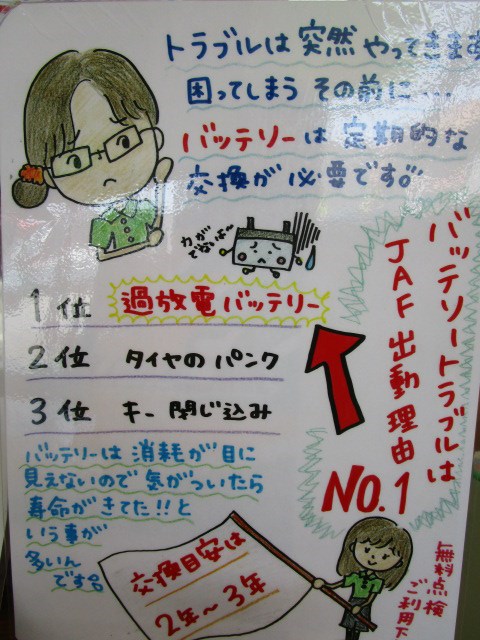 トラブルは突然やってきます
困ってしまうその前に…
バッテリーは定期的な
交換が必要です。
力が
でないよ〜
バッテリートラブルは
JAF出動理由
NO.1
1位 過放電バッテリー
2位 タイヤのパンク
3位 キー閉じ込み
バッテリーは消耗が目に
見えないので気がついたら
寿命がきてた!!と
いう事が
多いん
です。
交換目安は
2年〜3年
無料点検
ご利用下